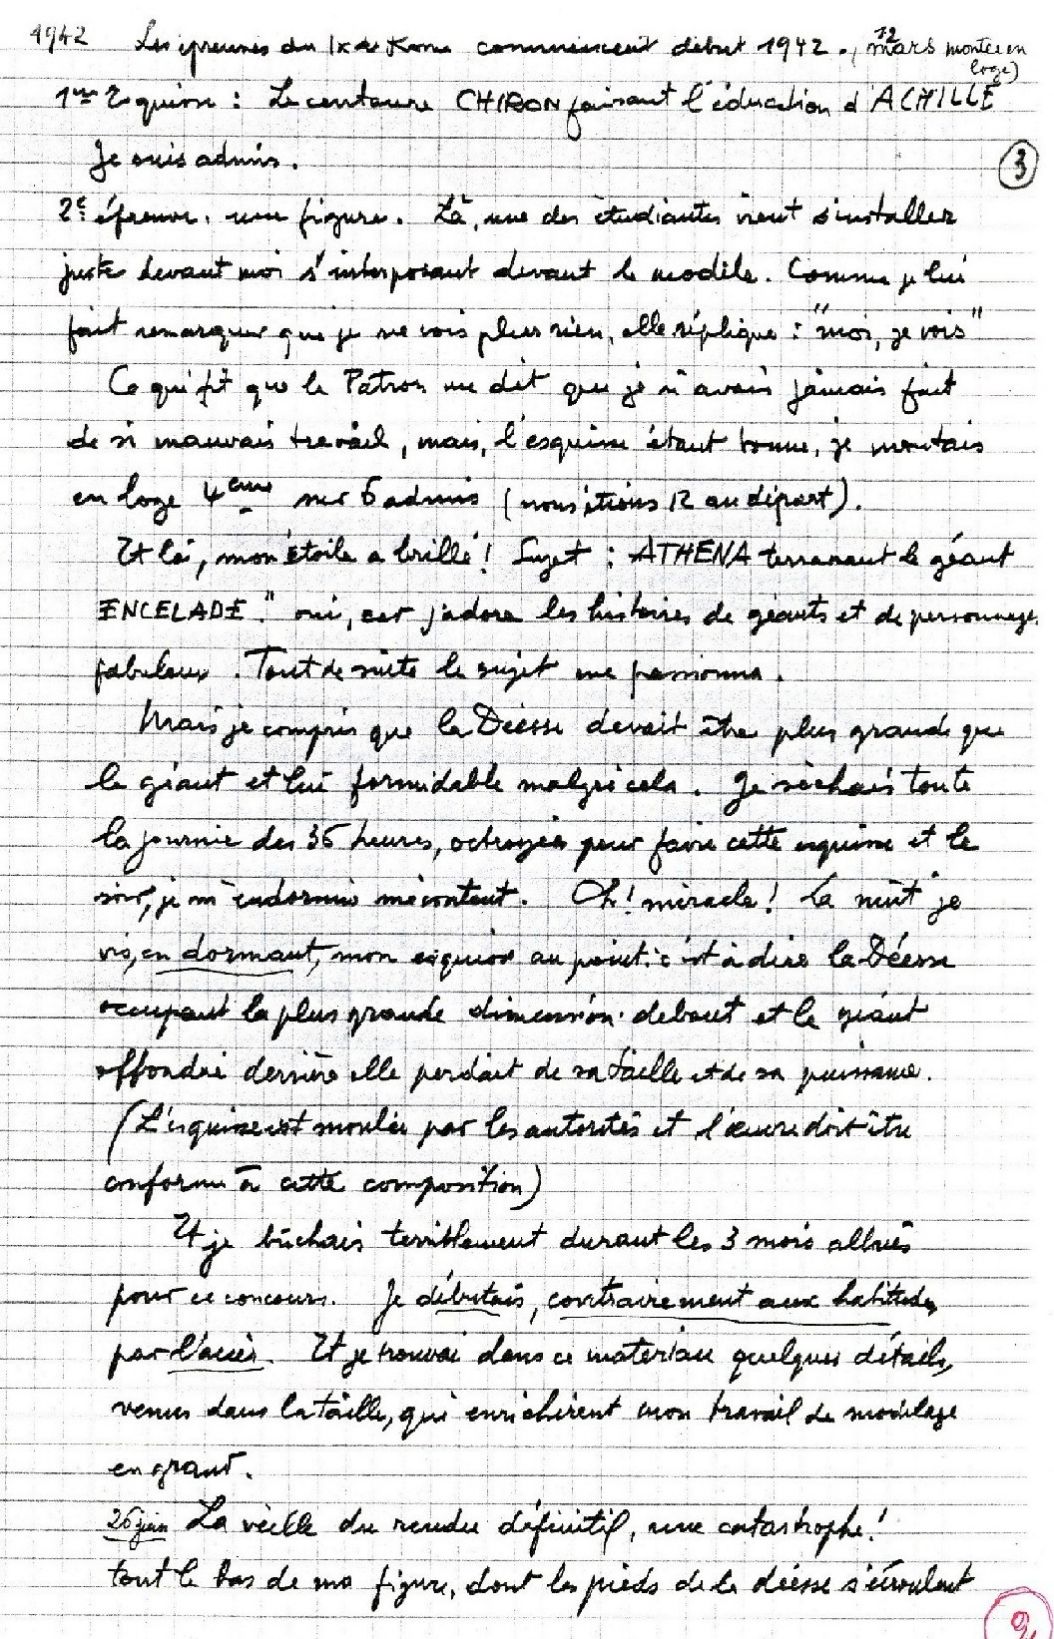 1942 Les épreuves du Px de Rome commencent début 1942. (12 mars montée en loge)
1ère Esquisse : Le centaure CHIRON faisant l'éducation d'ACHILLE
Je suis admis.
3
2e épreuve. une figure. Là, une des étudiantes vient s'installer
juste devant moi s'interposant devant le modèle. Comme je lui
fait remarquer que je ne vois plus rien, elle réplique : "moi, je vois"
Ce qui fit que le Patron me dit que je n'avais jamais fait
de si mauvais travail, mais, l'esquisse étant bonne, je montais
en loge 4ème sur 6 admis (nous étions 12 au départ).
Et là, mon étoile a brillé ! Sujet : ATHENA terrassant le géant
ENCELADE." oui, car j'adore les histoires de géants et de personnages
fabuleux. Tout de suite le sujet me passionna.
Mais je compris que la Déesse devait être plus grande que
le géant et lui formidable malgré cela. Je séchais toute
la journée des 36 heures, octroyées pour faire cette esquisse et le
soir, je m'endormis mécontent. Oh ! miracle ! La nuit je
vis, en dormant, mon esquisse au point : c'est à dire la Déesse
occupant la plus grande dimension. debout et le géant
effondré derrière elle perdait de sa taille et de sa puissance.
(L'esquisse est moulée par les autorités et l'œuvre doit être
conforme à cette composition)
Et je bûchais terriblement durant les 3 mois alloués
pour ce concours. Je débutais, contrairement aux habitudes,
par l'acier. Et je trouvai dans ce matériau quelques détails,
venus dans la taille, qui enrichirent mon travail de modelage
en grand.
26 juin La veille du rendu définitif, une catastrophe !
tout le bas de ma figure, dont les pieds de la déesse s'écroulent
2